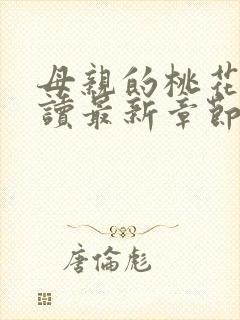 母親的桃花
讀最新章節
唐倫彪